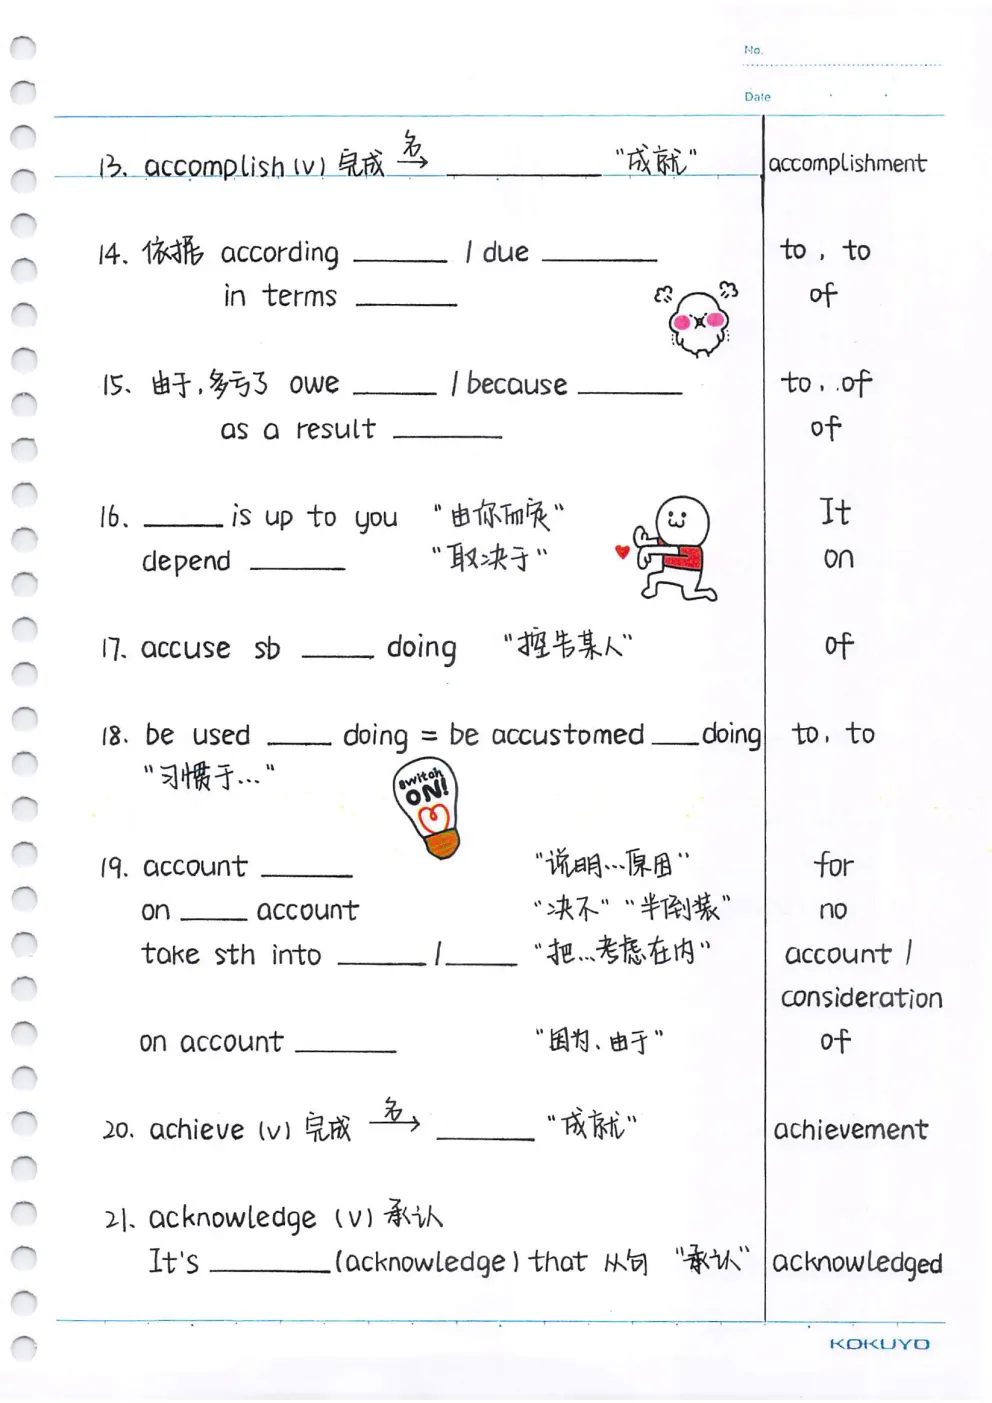 No.
Date
13. accomplish (v) 完成 名→ ________ "成就" accomplishment
14. 依据 according ________ / due ________ to, to
in terms ________ of
15. 由于,多亏了 owe ________ / because ________ to, of
as a result ________ of
16. ________ is up to you "由你而定" It
depend ________ "取决于" on
17. accuse sb ________ doing "控告某人" of
18. be used ________ doing = be accustomed ________ doing to, to
"习惯于..."
switch
ON!
19. account ________ "说明...原因" for
on ________ account "决不" "半倒装" no
take sth into ________ / ________ "把...考虑在内" account /
consideration
on account ________ "因为、由于" of
20. achieve (v) 完成 名→ ________ "成就" achievement
21. acknowledge (v) 承认
It's ________ (acknowledge) that 从句 "承认" acknowledged
KOKUYO